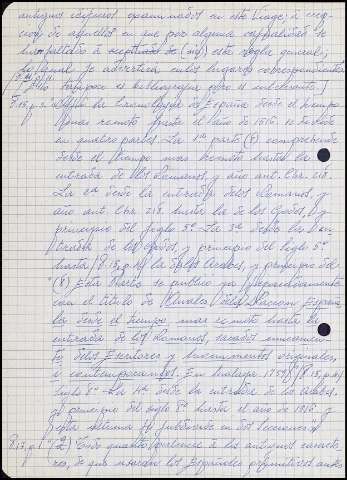 antiguos códices examinados en este Viage, à excep
cion de aquellos en que por alguna casualidad se
haya faltado à (sic) esta regla general;
lo qual se advertirá en los lugares correspondientes
tampoco es bibliografía pero es interesante]
8.13, p. la Cronología de España desde el tiempo
mas remoto hasta el año de 1516 se divide
en quatro partes. La 1ª parte (8) comprehende
desde el tiempo mas remoto hasta la
entrada de los Romanos, y año ant. Chr. 218.
La 2ª desde la entrada de los Romanos, y
año ant. Chr. 218. hasta la de los Godos, y
principio del siglo 5º La 3ª desde la en-
trada de los Godos, y principio del siglo 5º
hasta la de los Arabes, y principio del
(8) Esta Parte se publicó ya separadamente
con el titulo de Anales de la Nacion Españo
la desde el tiempo mas remoto hasta la
entrada de los Romanos, sacados unicamen-
te de los Escritores y monumentos originales,
i contemporaneos. En Malaga 1759]
siglo 8º La 4ª desde la entrada de los Arabes
y principio del siglo 8º hasta el año de 1516. y
esta ultima se subdivide en dos secciones
(2) Todo quanto pertenece à los antiguos caracte-
res, de que usaron los Españoles primitivos antes